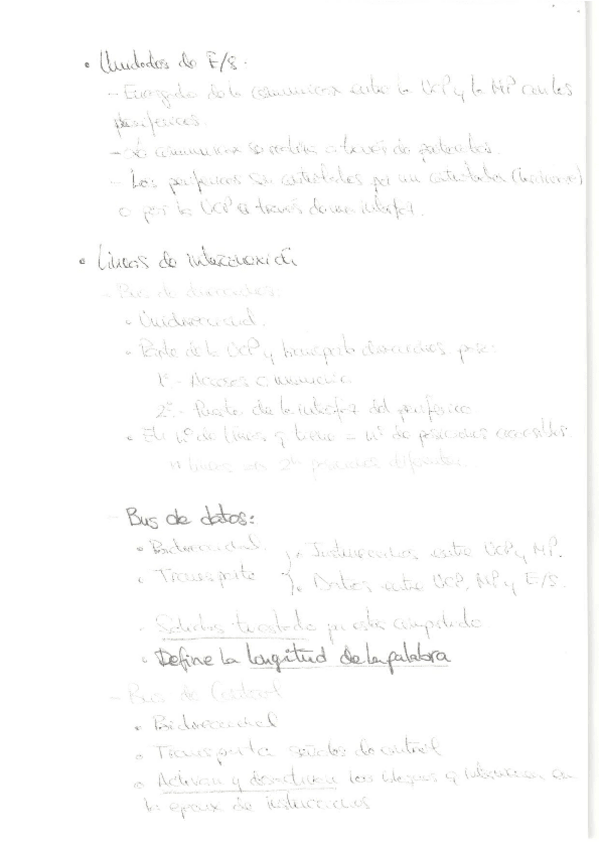 • Unidades de E/S:
- Encargada de la comunicac entre la UCP y la MP con los
periféricos.
- La comunicac se realiza a través de
- Los periféricos son controlados por un controlador (hardware)
o por la UCP a través de una interfaz.
• Líneas de interconexión
- Bus de direcciones:
• Unidireccional.
• Parte de la UCP y transporta direcciones para:
1º.- Acceso a memoria
2º.- Puerto de la interfaz del periférico
• El nº de líneas q tiene = nº de posiciones accesibles.
n líneas 2ⁿ posiciones diferentes.
Bus de datos:
• Bidireccional. Instrucciones entre UCP y MP.
• Transporte Datos entre UCP, MP y E/S.
•
• Define la longitud de la palabra
- Bus de Control
• Bidireccional
• Transporta señales de control
• Activan y desactivan los q en
la de instrucciones